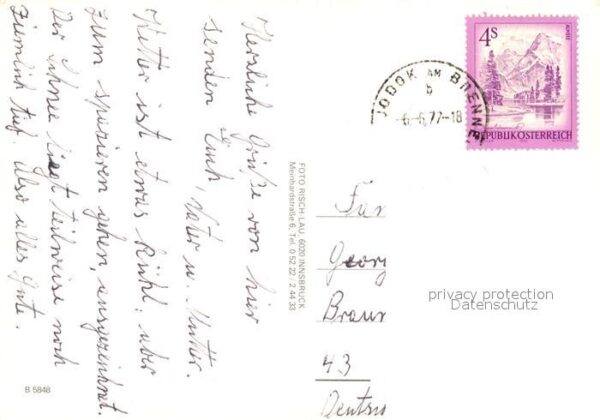 Herzliche Grüße von hier
senden Euch, Vater u. Mutter.
Wetter ist etwas kühl, aber
zum spazieren gehen, ausgezeichnet.
Der Schnee liegt teilweise noch
ziemlich tief. Also alles Gute.
B 5848
FOTO RISCH-LAU, 6020 INNSBRUCK
Meinhardstraße 6, Tel. 0 52 22 / 2 44 33
JODOK AM BRENNE
b
-6.-6.77-18
4S
REPUBLIK ÖSTERREICH
Georg
Braun
43
privacy protection
Datenschutz